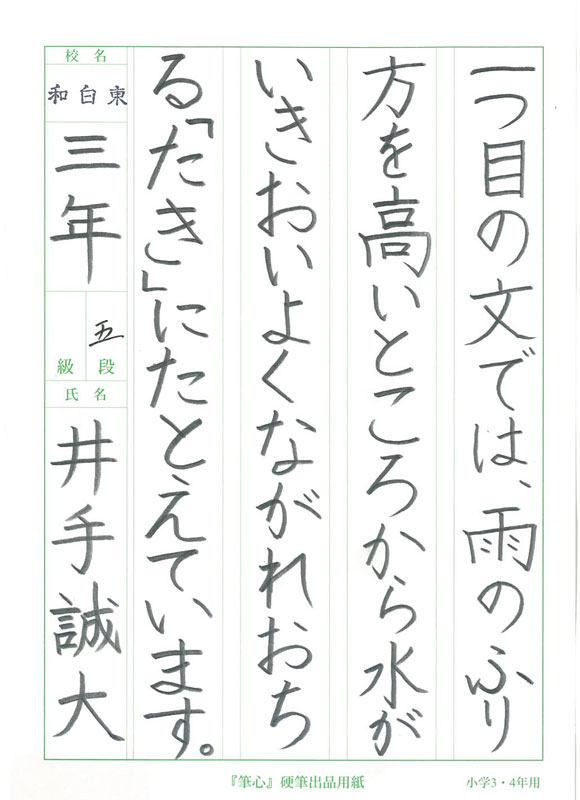 一つ目の文では、雨のふり
方を高いところから水が
いきおいよくながれおち
る「たき」にたとえています。
校名
和白東
三年
五
段
級
氏名
井手誠大
『筆心』硬筆出品用紙
小学3・4年用